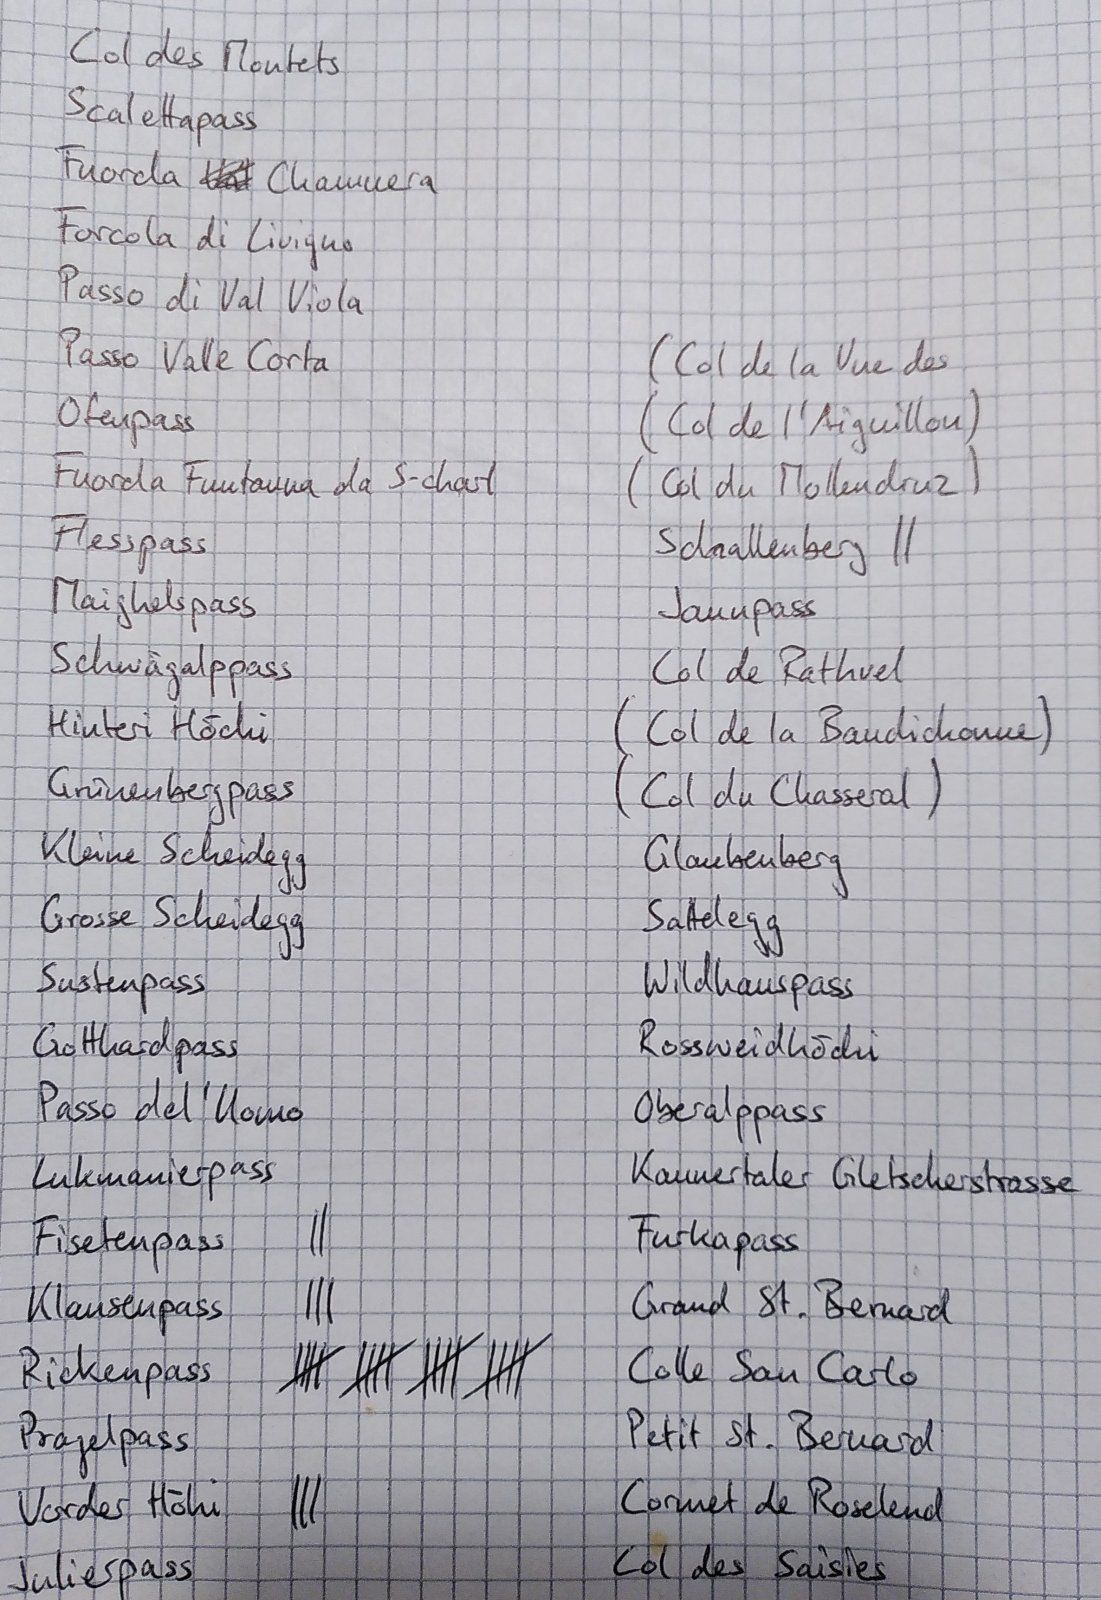 Col des Montets
Scalettapass
Fuorcla Chamuera
Forcola di Livigno
Passo di Val Viola
Passo Valle Corta
Ofenpass
Fuorcla Funtauna da S-charl
Flesspass
Maighelspass
Schwägalppass
Hinteri Höchi
Grünenbergpass
Kleine Scheidegg
Grosse Scheidegg
Sustenpass
Gotthardpass
Passo del'Uomo
Lukmanierpass
Fisetenpass ||
Klausenpass |||
Rickenpass |||| |||| |||| ||||
Pragelpass
Vorder Höhi |||
Julierpass
(Col de la Vue des
(Col de l'Aiguillon)
(Col du Mollendruz)
Schallenberg ||
Jaunpass
Col de Rathvel
(Col de la Baudichonne)
(Col du Chasseral)
Glaubenberg
Sattelegg
Wildhauspass
Rossweidhöchi
Oberalppass
Kaunertaler Gletscherstrasse
Furkapass
Grand St. Bernard
Colle San Carlo
Petit St. Bernard
Cormet de Roselend
Col des Saisies